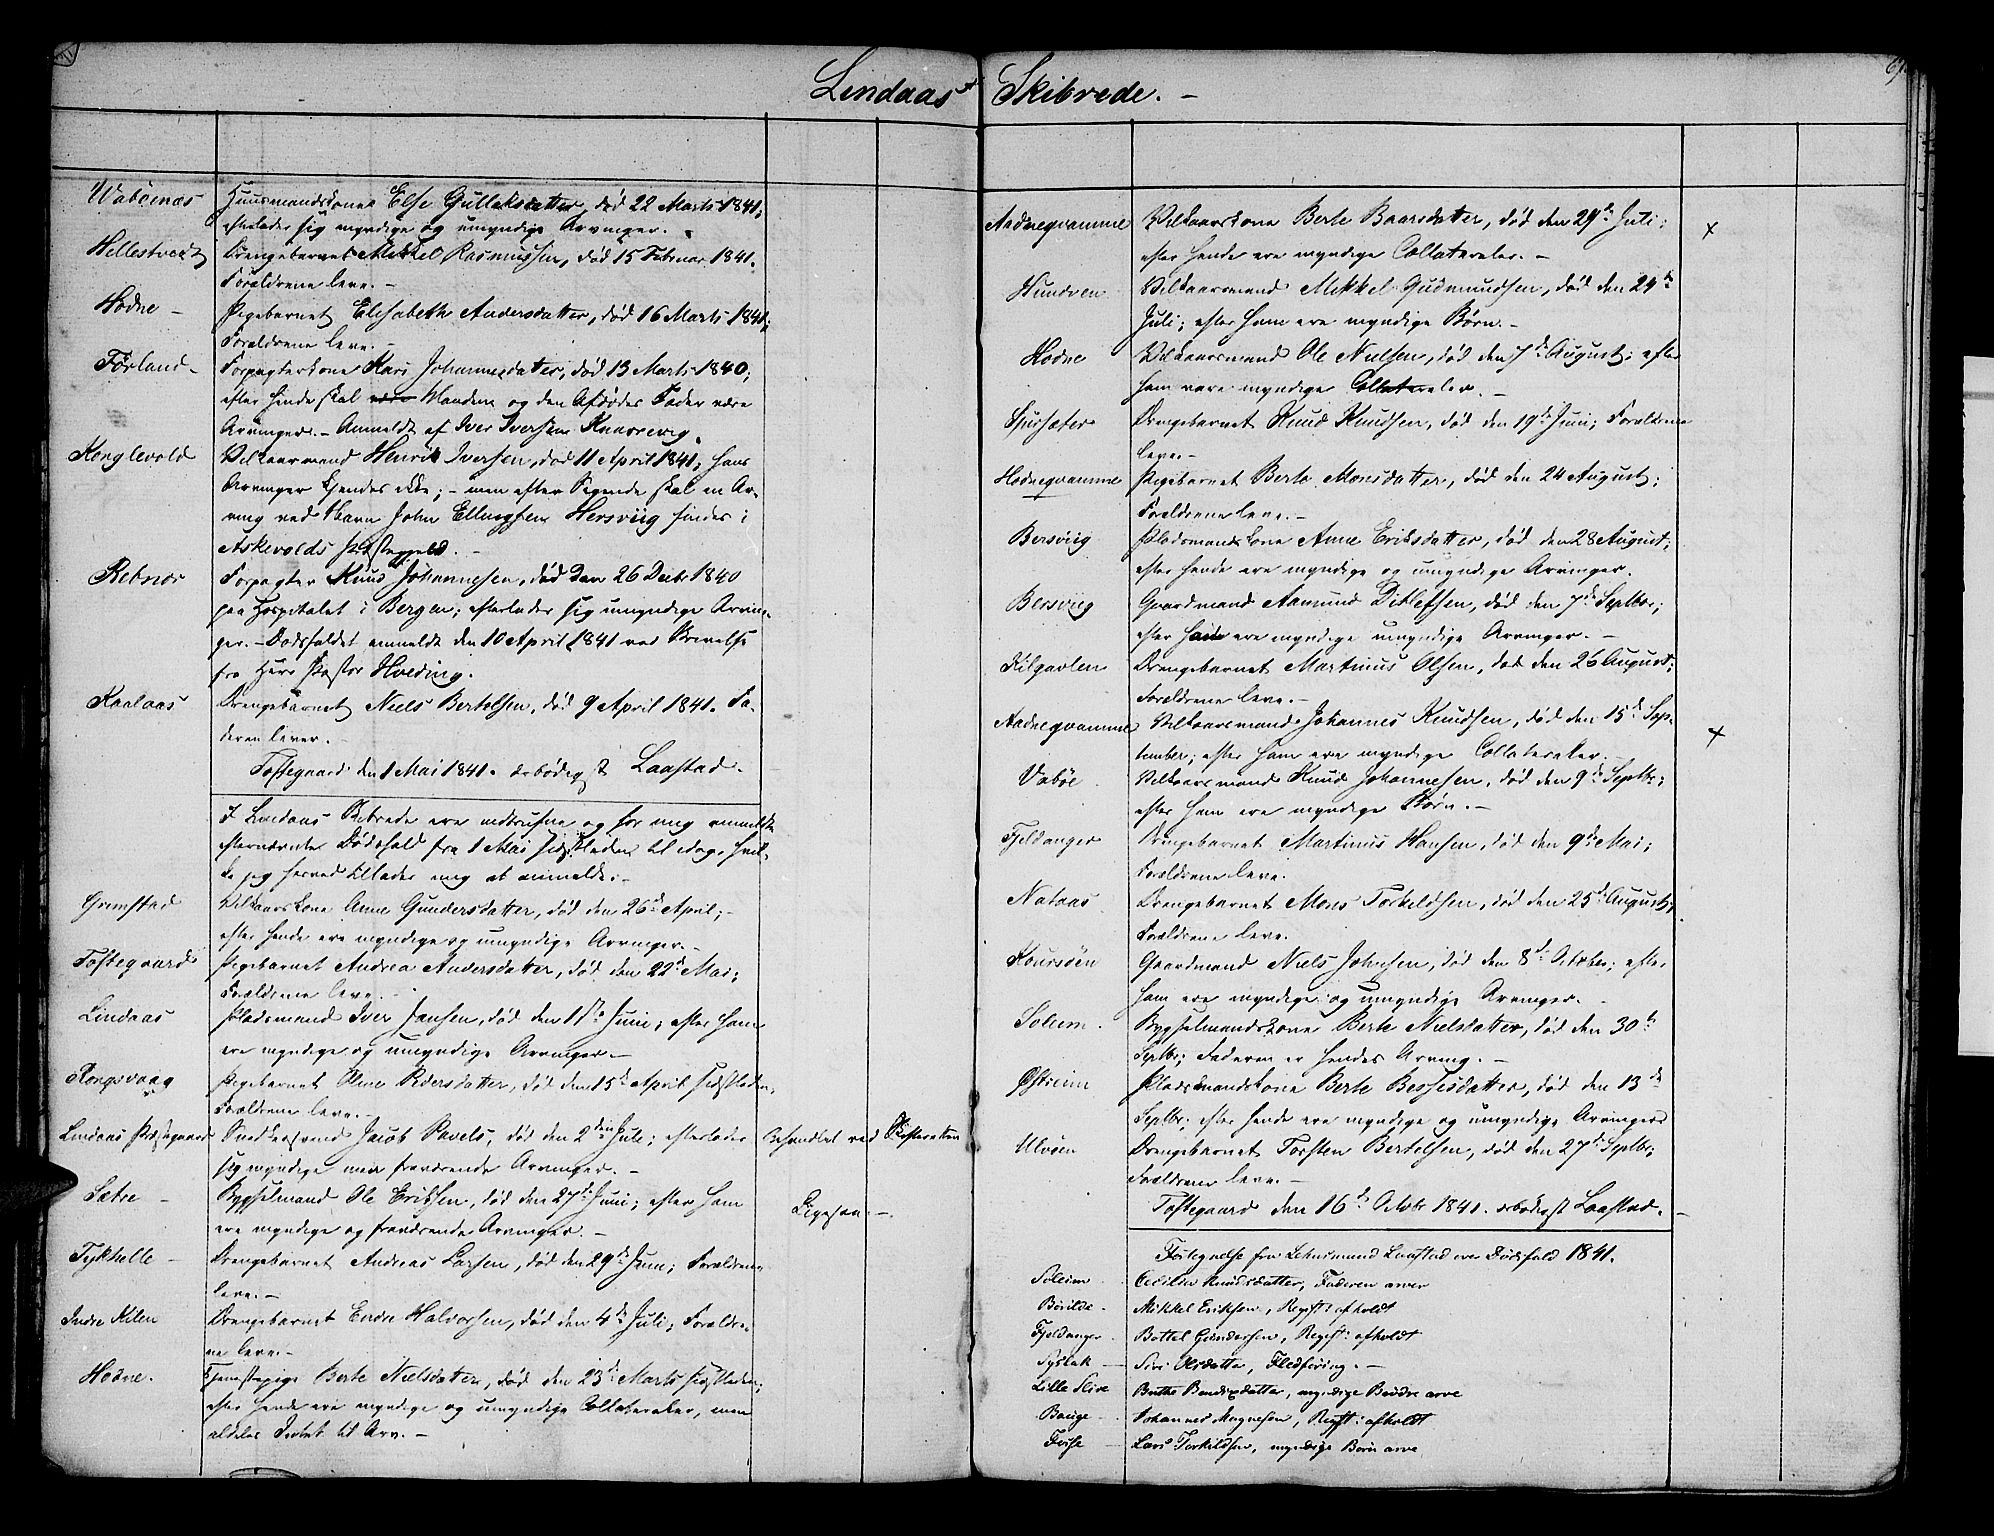 Lindaas Skibrede. -
Waböenæs Huusmandskone Else Gullaksdatter, død 22 Marts 1841;
efterlader sig myndige og umyndige Arvinger.
Hillestvedt Drengebarnet Mikkel Rasmussen, død 15 Februar 1841.
Forældrene leve. -
Hodne - Pigebarnet Elisabeth Andersdatter, død 16 Marts 1841;
Forældrene leve. -
Førland - Forpagterkone Kari Johannesdatter, død 13 Marts 1840;
efter hende skal være Manden og den Afdødes Fader være
Arvinger. - Anmeldt af Iver Iversen Knarrevig.
Konglevold Vilkaarmand Henrik Iversen, død 11 April 1841; hans
Arvinger kjendes ikke; - men efter Sigende skal en Ar-
ving ved Navn John Ellingsen Hersviig findes i
Askevolds Præstegjeld. -
Rebnor Forpagter Knud Johannesen, død den 26 Decbr 1840
paa Hospitalet i Bergen; efterlader sig umyndige Arvin-
ger. - Dødsfaldet anmeldt den 10 April 1841 ved Skrivelse
fra Herr Pastor Hveding.
Kaalaas Drengebarnet Niels Bertelsen, død 9 April 1841. Fa-
deren lever. -
Toftegaard den 1 Mai 1841. ærbødigst Laastad.
I Lindaas Skibrede ere indtrufne og for mig anmeldte
efternævnte Dødsfald fra 1 Mai sidstleden til idag, hvil-
ke jeg herved tillader mig at anmelde. -
Grimstad Vilkaarskone Anne Gundersdatter, død den 26de April; -
efter hende ere myndige og umyndige Arvinger. -
Toftegaard Pigebarnet Andrea Andersdatter, død den 22de Mai;
Forældrene leve. -
Lindaas Pladsmand Iver Jansen, død den 11te Juni; efter ham
ere myndige og umyndige Arvinger. -
Rongsvaag Pigebarnet Oline Pedersdatter, død den 15de April sidstleden,
Forældrene leve. -
Lindaas Præstegaard Snedkersvend Jacob Pavels, død den 2den Juli; efterlader Behandlet ved Skifteretten
sig myndige men fraværende Arvinger. -
Sætre - Bygselmand Ole Eriksen, død den 27de Juni; efter ham Ligesaa. -
ere myndige og fraværende Arvinger. -
Tykhelle - Drengebarnet Andreas Larsen, død den 29de Juni; Forældrene
leve. -
Indre Kilen Drengebarnet Endre Halvorsen, død den 4de Juli; Forældre-
ne leve. -
Hodne. Tjenestepige Berte Nielsdatter, død den 23de Marts sidstleden;
efter hende ere myndige og umyndige Collateraler, men
aldeles Intet til Arv. -
Aadneqvamme Vilkaarskone Berte Baarsdatter, død den 29de Juli; x
efter hende ere myndige Collateraler. -
Hundven Vilkaarsmand Mikkel Gudmundsen, død den 29de
Juli; efter ham ere myndige Børn. -
Hodne Vilkaarsmand Ole Nielsen, død den 7de August; efter
ham være myndige Collateraler. -
Spursæter Drengebarnet Knud Knudsen, død den 19de Juni; Forældrene
leve. -
Hodneqvamme Pigebarnet Berte Monsdatter, død den 24 August;
Forældrene leve. -
Bersviig Pladsmandskone Anne Eriksdatter, død den 28 August;
efter hende ere myndige og umyndige Arvinger.
Bersviig Gaardmand Aamund Ditlefsen, død den 7de Septbr;
efter ham ere myndige umyndige Arvinger. -
Kilgavlen Drengebarnet Martinus Olsen, død den 26 August;
Forældrene leve. -
Aadneqvamme Vilkaarsmand Johannes Knudsen, død den 15de Sep- x
tember; efter ham ere myndige Collateraler.
Vaböe Vilkaarsmand Knud Johannesen, død den 9de Septbr;
efter ham ere myndige Børn. -
Fjeldanger Drengebarnet Martinus Hansen, død den 9de Mai;
Forældrene leve.
Nataas Drengebarnet Mons Torkildsen, død den 25de August;
Forældrene leve.
Gaardmand Niels Johnsen, død den 8de October; efter
ham ere myndige og umyndige Arvinger. -
Soleim. Bygselmandskone Berte Nielsdatter, død den 30te
Septbr; Faderen er hendes Arving. -
Østreim Pladsmandskone Berte Bessesdatter, død den 13de
Septbr; efter hende ere myndige og umyndige Arvinger
Ulvöen Drengebarnet Torsten Bertelsen, død den 27de Septbr;
Forældrene leve. -
Toftegaard den 16de Octobr 1841. ærbødigst Laastad. -
Fortegnelse fra Lehnsmand Laastad over Dødsfald 1841.
Soleim Cecilia Knudsdatter, Faderen arver
Börilde. Mikkel Eriksen, Regist: afholdt
Fjeldanger Bottel Gundersen, Regist: afholdt
Syslak - Siri Olsdatter, Fledføring. -
Lille Flive Berthe Bendixdatter, myndige Brødre arve
Bauge - Johannes Magnesen, Regist: afholdt
Lars Torkildsen, myndige Børn arve